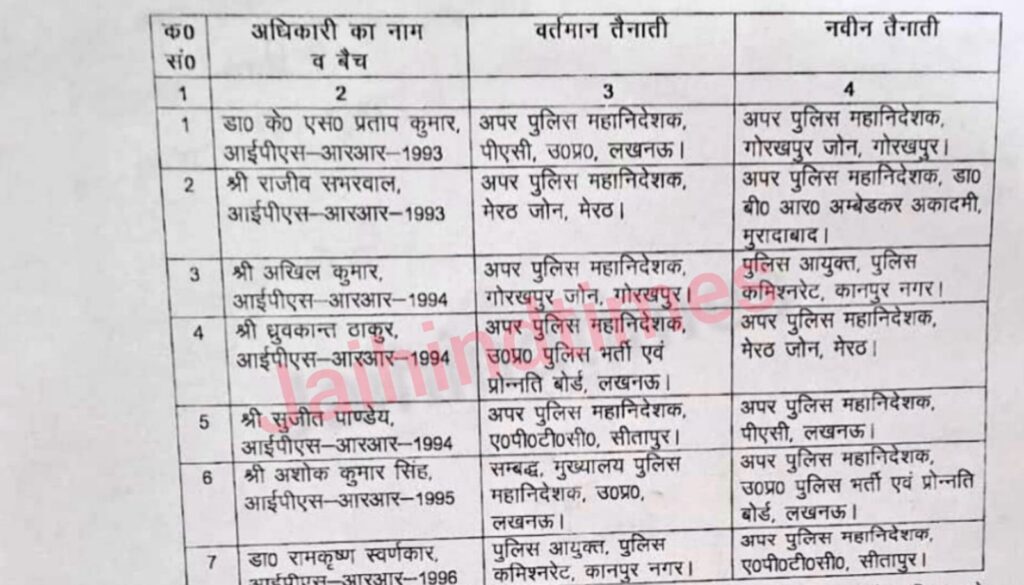 क0 सं0 | अधिकारी का नाम व बैच | वर्तमान तैनाती | नवीन तैनाती
1 | 2 | 3 | 4
1 | डा0 के0 एस0 प्रताप कुमार, | अपर पुलिस महानिदेशक, | अपर पुलिस महानिदेशक,
आईपीएस–आरआर–1993 | पीएसी, उ0प्र0, लखनऊ। | गोरखपुर जोन, गोरखपुर।
2 | श्री राजीव सभरवाल, | अपर पुलिस महानिदेशक, | अपर पुलिस महानिदेशक, डा0
आईपीएस–आरआर–1993 | मेरठ जोन, मेरठ। | बी0 आर0 अम्बेडकर अकादमी,
मुरादाबाद।
3 | श्री अखिल कुमार, | अपर पुलिस महानिदेशक, | पुलिस आयुक्त, पुलिस
आईपीएस–आरआर–1994 | गोरखपुर जोन, गोरखपुर। | कमिश्नरेट, कानपुर नगर।
4 | श्री ध्रुवकान्त ठाकुर, | अपर पुलिस महानिदेशक, | अपर पुलिस महानिदेशक,
आईपीएस–आरआर–1994 | उ0प्र0 पुलिस भर्ती एवं | मेरठ जोन, मेरठ।
प्रोन्नति बोर्ड, लखनऊ।
5 | श्री सुजीत पाण्डेय, | अपर पुलिस महानिदेशक, | अपर पुलिस महानिदेशक,
आईपीएस–आरआर–1994 | ए0पी0टी0सी0, सीतापुर। | पीएसी, लखनऊ।
6 | श्री अशोक कुमार सिंह, | सम्बद्ध, मुख्यालय पुलिस | अपर पुलिस महानिदेशक,
आईपीएस–आरआर–1995 | महानिदेशक, उ0प्र0, | उ0प्र0 पुलिस भर्ती एवं प्रोन्नति
लखनऊ। | बोर्ड, लखनऊ।
7 | डा0 रामकृष्ण स्वर्णकार, | पुलिस आयुक्त, पुलिस | अपर पुलिस महानिदेशक,
आईपीएस–आरआर–1996 | कमिश्नरेट, कानपुर नगर। | ए0पी0टी0सी0, सीतापुर।
Jaihindtimes